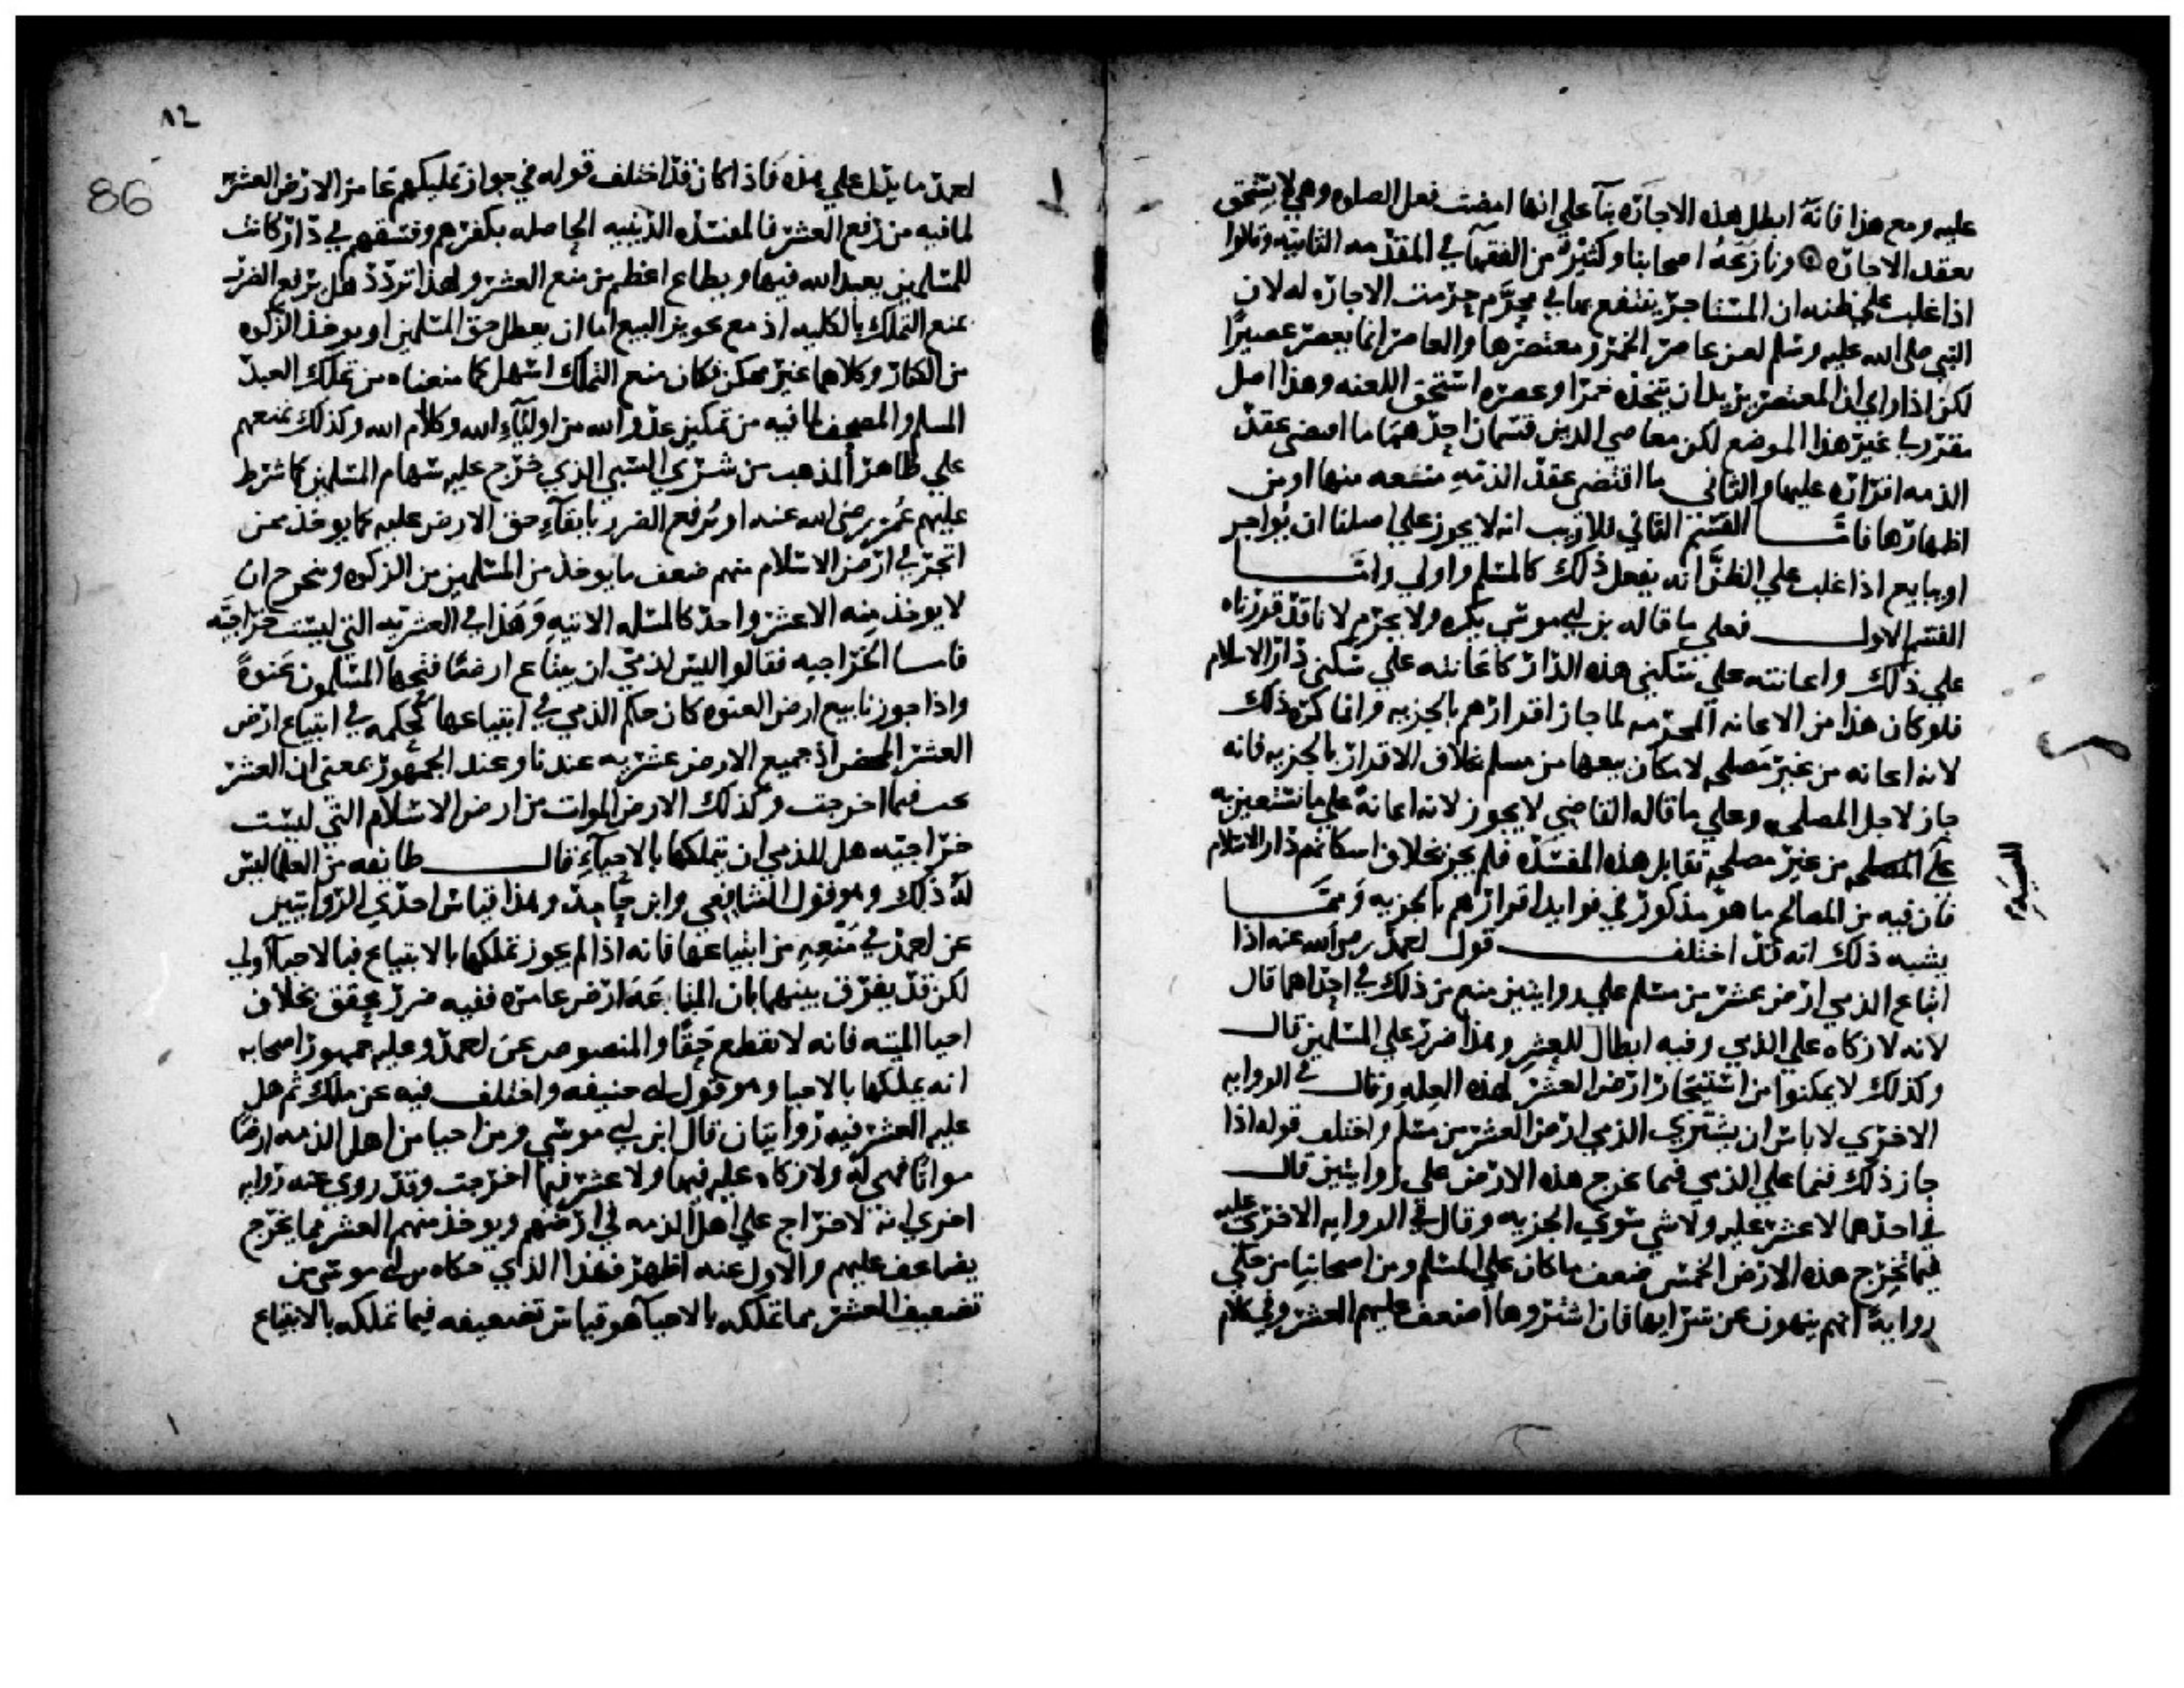 عليه ومع هذا فانه ابطل هذه الاجاره بنآ على انها اقتضت فعل الصلوه وهي لا تستحق
بعقد الاجاره ونازعه اصحابنا وكثير من الفقهآ في المقدمه الثانيه وقالوا
اذا غلب على ظنه ان المستاجر ينتفع بها في محرم حرمت الاجاره له لان
النبي صلى الله عليه وسلم لعن عاصر الخمر ومعتصرها والعاصر انما يعصر عصيرا
لكن اذا راي ان المعتصر يريد ان يتخذه خمرا وعصره استحق اللعنه وهذا اصل
مقرر في غير هذا الموضع لكن معاصي الذمي قسمان احدهما ما اقتضى عقد
الذمه اقراره عليها والثاني ما اقتضى عقد الذمه منعه منها او من
اظهارها فامـا القسم الثاني فلا ريب انه لا يجوز على اصلنا ان يواجر
او يبايع اذا غلب على الظن انه يفعل ذلك كالمسلم واولي وامـا
القسم الاول فعلى ما قاله بن ابي موسى يكره ولا يحرم لانا قد قررناه
على ذلك واعانته على سكنى هذه الدار كاعانته على سكنى دار الاسلام
فلو كان هذا من الاعانه المحرمه لما جاز اقرارهم بالجزيه وانما كره ذلك
لانه اعانه من غير مصلحه لامكان بيعها من مسلم بخلاف الاقرار بالجزيه فانه
جاز لاجل المصلحه وعلى ما قاله القاضي لا يجوز لانه اعانة على ما تستعين به
على المعصيه من غير مصلحه تقابل هذه المفسده فلم يجز بخلاف اسكانهم دار الاسلام
فان فيه من المصالح ما هو مذكور في فوايد اقرارهم بالجزيه وممـا
يشبه ذلك انه قد اختلف قول احمد رضي الله عنه اذا
ابتاع الذمي ارض عشر من مسلم على روايتين منع من ذلك في احداهما قال
لانه لا زكاه على الذمي وفيه ابطال للعشر وهذا ضرر على المسلمين قال
وكذلك لا يمكنوا من استيجار ارض العشر لهذه العله وقال في الروايه
الاخري لا باس ان يشتري الذمي ارض العشر من مسلم واختلف قوله اذا
جاز ذلك فيما على الذمي فيما يخرج هذه الارض على روايتين قال
في احدهما لا عشر عليه ولا شي سوي الجزيه وقال في الروايه الاخري عليه
فيما يخرج هذه الارض الخمس ضعف ما كان على المسلم ومن اصحابنا من حكى
رواية انهم ينهون عن شرايها فان اشتروها اضعف عليهم العشر وفي كلام
٨٢
86
احمد ما يدل على هذه فاذا كان قد اختلف قوله في جواز تمليكهم عامر الارض العشر
لما فيه من رفع العشر فالمفسده الدينيه الحاصله بكفرهم وفسقهم في دار كانت
للمسلمين يعبد الله فيها ويطاع اعظم من منع العشر ولهذا تردد هل يرفع الضرر
بمنع التملك بالكليه اذ مع تجويز البيع اما ان يعطل حق المسلمين او يوخذ الزكوه
من الكفار وكلاهما غير ممكن فكان منع التملك اسهل كما منعناه من تملك العبد
المسلم والمصحف لما فيه من تمكين عدو الله من اوليآء الله وكلام الله وكذلك نمنعهم
على ظاهر المذهب من شري السبي الذي خرج عليه سهام المسلمين كما شرط
عليهم عمر رضي الله عنه او يرفع الضرر بابقآء حق الارض عليه كما يوخذ ممن
اتجر في ارض الاسلام منهم ضعف ما يوخذ من المسلمين من الزكوه ويخرج ان
لا يوخذ منه الا عشر واحد كالمسله الاتيه وهذا في العشريه التي ليست خراجيه
فاما الخراجيه فقالوا ليس لذمي ان يبتاع ارضا فتحها المسلمون عنوة
واذا جوزنا بيع ارض العنوه كان حكم الذمي في ابتياعها كحكمه في ابتياع ارض
العشر المحض اذ جميع الارض عشريه عندنا وعند الجمهور بمعنى ان العشر
يجب فيما اخرجت وكذلك الارض الموات من ارض الاسلام التي ليست
خراجيه هل للذمي ان يتملكها بالاحيآء قال طايفه من العلما ليس
له ذلك وهو قول الشافعي وابن حامد وهذا قياس احدي الروايتين
عن احمد في منعه من ابتياعها فانه اذا لم يجوز تملكها بالابتياع فبالاحيآ اولي
لكن قد يفرق بينهما بان المبتاعة ارض عامره ففيه ضرر محقق بخلاف
احيا الميته فانه لا يقطع حقا والمنصوص عن احمد وعليه جمهور اصحابه
انه يملكها بالاحيا وهو قول ابي حنيفه واختلف فيه عن ملك ثم هل
عليه العشر فيه روايتان قال ابن ابي موسى ومن احيا من اهل الذمه ارضا
مواتا فهي له ولا زكاه عليه فيها ولا عشر فيما اخرجت وقد روي عنه روايه
اخري انه لا خراج على اهل الذمه في ارضهم ويوخذ منهم العشر مما يخرج
يضاعف عليهم والاول عنه اظهر فهذا الذي حكاه بن ابي موسى من
تضعيف العشر مما تملكه بالاحيآ هو قياس تضعيفه فيما تملكه بالابتياع